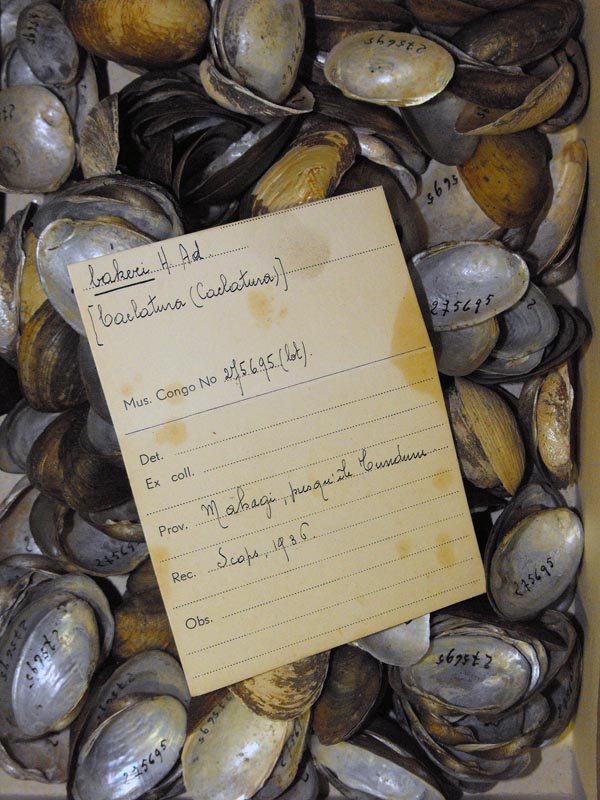 bakeri H. Ad.
[Caelatura (Caelatura)]
Mus. Congo No 275.695 (lot).
Det.
Ex coll.
Prov. Mahagi, presqu'île
Rec. 1936.
Obs.
275695
275695
275695
275695
275695
275695
275695
275695
275695